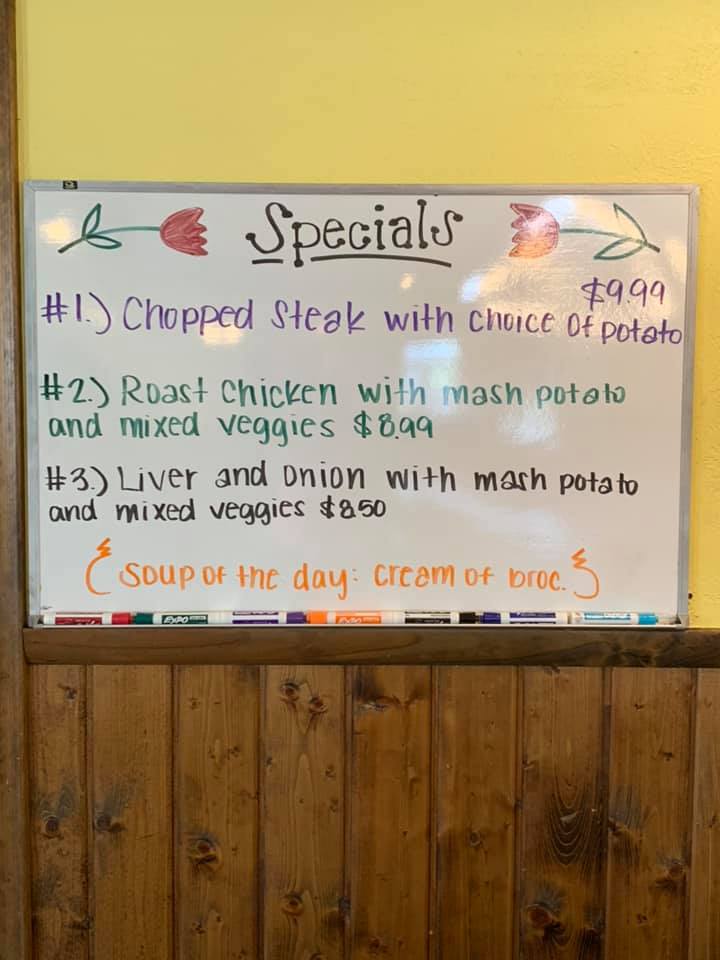 Specials
$9.99
#1.) Chopped Steak with choice of potato
#2.) Roast Chicken with mash potato
and mixed veggies $8.99
#3.) Liver and Onion with mash potato
and mixed veggies $8.50
Soup of the day: cream of broc.
EXPO EXPO